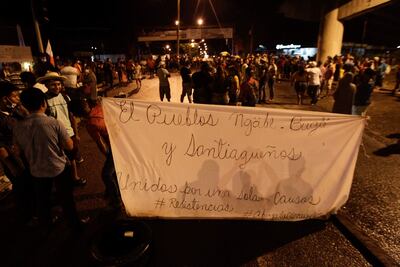 El Pueblos Ngäbe Buglé
y Santiagueños
Unidos por una sola Causas
#Resistencias